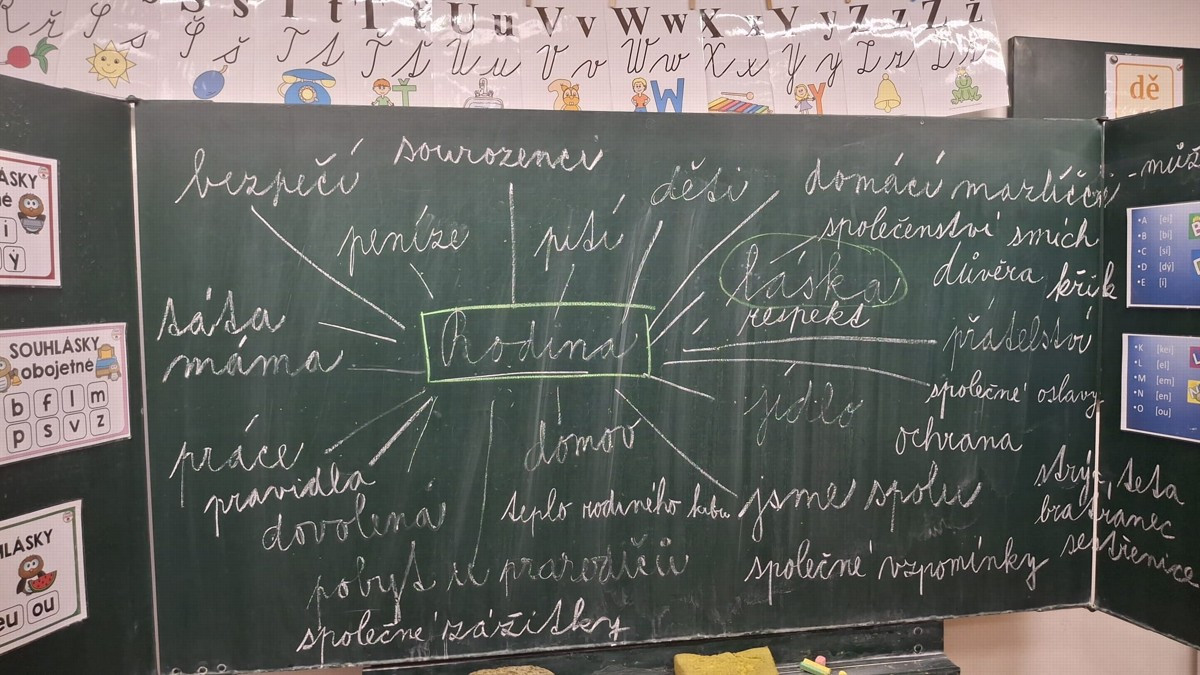 Š s T t Ť ť U u V v W w X x Y y Z z Ž ž
Ř ř S s Š š T t Ť ť U u V v W w X x Y y Z z Ž ž
T W Y
dě
bezpečí
sourozenci
děti
domácí mazlíčci - můž
peníze
pití
společenství smích
láska
důvěra křik
respekt
táta
máma
Rodina
přátelství
společné oslavy
jídlo
ochrana
domov
práce
pravidla
dovolená
teplo rodiného krbu
jsme spolu
strýc, teta
bratranec
sestřenice
pobyt u prarodičů
společné vzpomínky
společné zážitky
ÁSKY
né
i
ý
SOUHLÁSKY
obojetné
b f l m
p s v z
HLÁSKY
eu ou
•A [ei]
•B [bí]
•C [sí]
•D [dý]
•E [í]
•K [kei]
•L [el]
•M [em]
•N [en]
•O [ou]